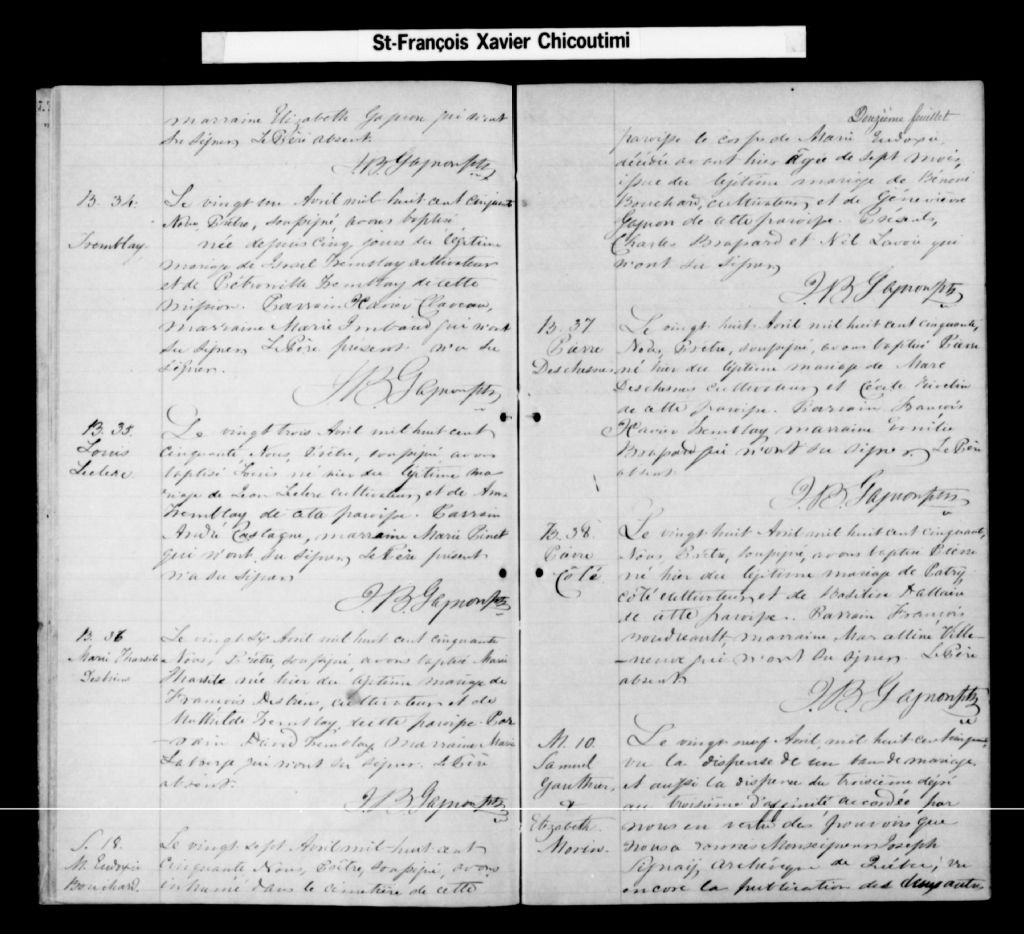 St-François Xavier Chicoutimi
marraine Elizabeth Gagnon qui n'ont
su signer Le Père absent.
J.B. Gagnon ptre
B. 34.
Tremblay.
Le vingt un Avril mil huit cent cinquante
Nous Prêtre, soussigné avons baptisé
née depuis cinq jours du légitime
mariage de Israel Tremblay cultivateur
et de Pétronille Tremblay de cette
mission. Parrain Xavier Claveau,
marraine Marie Imbaud qui n'ont
su signer Le Père présent n'a su
signer.
J.B. Gagnon ptre
B. 35.
Louis
Leclerc
Le vingt trois Avril mil huit cent
cinquante Nous, Prêtre, soussigné avons
baptisé Louis né hier du légitime ma
riage de Leclerc cultivateur et de
Tremblay de cette paroisse. Parrain
André Castagne, marraine Marie
qui n'ont su signer Le Père présent
n'a su signer
J.B. Gagnon ptre
B. 36
Marie Tharsile
Desbiens
Le vingt six Avril mil huit cent cinquante
Nous, Prêtre, soussigné avons baptisé Marie
Tharsile né hier du légitime mariage de
François Desbiens, cultivateur et de
Mathilde Tremblay, de cette paroisse. Par
-rain David Tremblay marraine Marie
Laforge qui n'ont su signer. Le Père
absent.
J.B. Gagnon ptre
S. 18.
M. Eudoxie
Bouchard.
Le vingt sept Avril mil huit cent
Cinquante Nous, Prêtre, soussigné, avons
inhumé dans le cimetière de cette
Douzième feuillet
paroisse le corps de Marie Eudoxie,
décédée avant hier âgée de sept mois,
issue du légitime mariage de Bénoni
Bouchard, cultivateur et de Généviève
Gagnon de cette paroisse. Présents,
Charles Brassard et Nil Lavoie qui
n'ont su signer
J.B. Gagnon ptre
B. 37.
Pierre
Deschesnes
Le vingt huit Avril mil huit cent cinquante,
Nous, Prêtre, soussigné, avons baptisé Pierre
né hier du légitime mariage de Marc
Deschesnes cultivateur et Cécile
de cette paroisse. Parrain François
Xavier Tremblay marraine Emilie
Brassard qui n'ont su signer Le Père
absent
J.B. Gagnon ptre
B. 38.
Pierre
Côté
Le vingt huit Avril mil huit cent cinquante,
Nous, Prêtre, soussigné, avons baptisé Pierre
né hier du légitime mariage de Patry
Côté cultivateur et de Basilise Dallaire
de cette paroisse. Parrain François
marraine Marcelline Ville-
-neuve qui n'ont su signer. Le Père
absent
J.B. Gagnon ptre
M. 10.
Samuel
Gauthier,
&
Elizabeth
Morin.
Le vingt neuf Avril, mil huit cent cinquante,
vu la dispense de un ban de mariage,
et aussi la dispense du troisième dégré
au troisième d'affinité accordée par
nous en vertu des pouvoirs que
nous a donnés Monseigneur Joseph
Signaÿ Archévêque de Québec, vu
encore la publication des deux autres